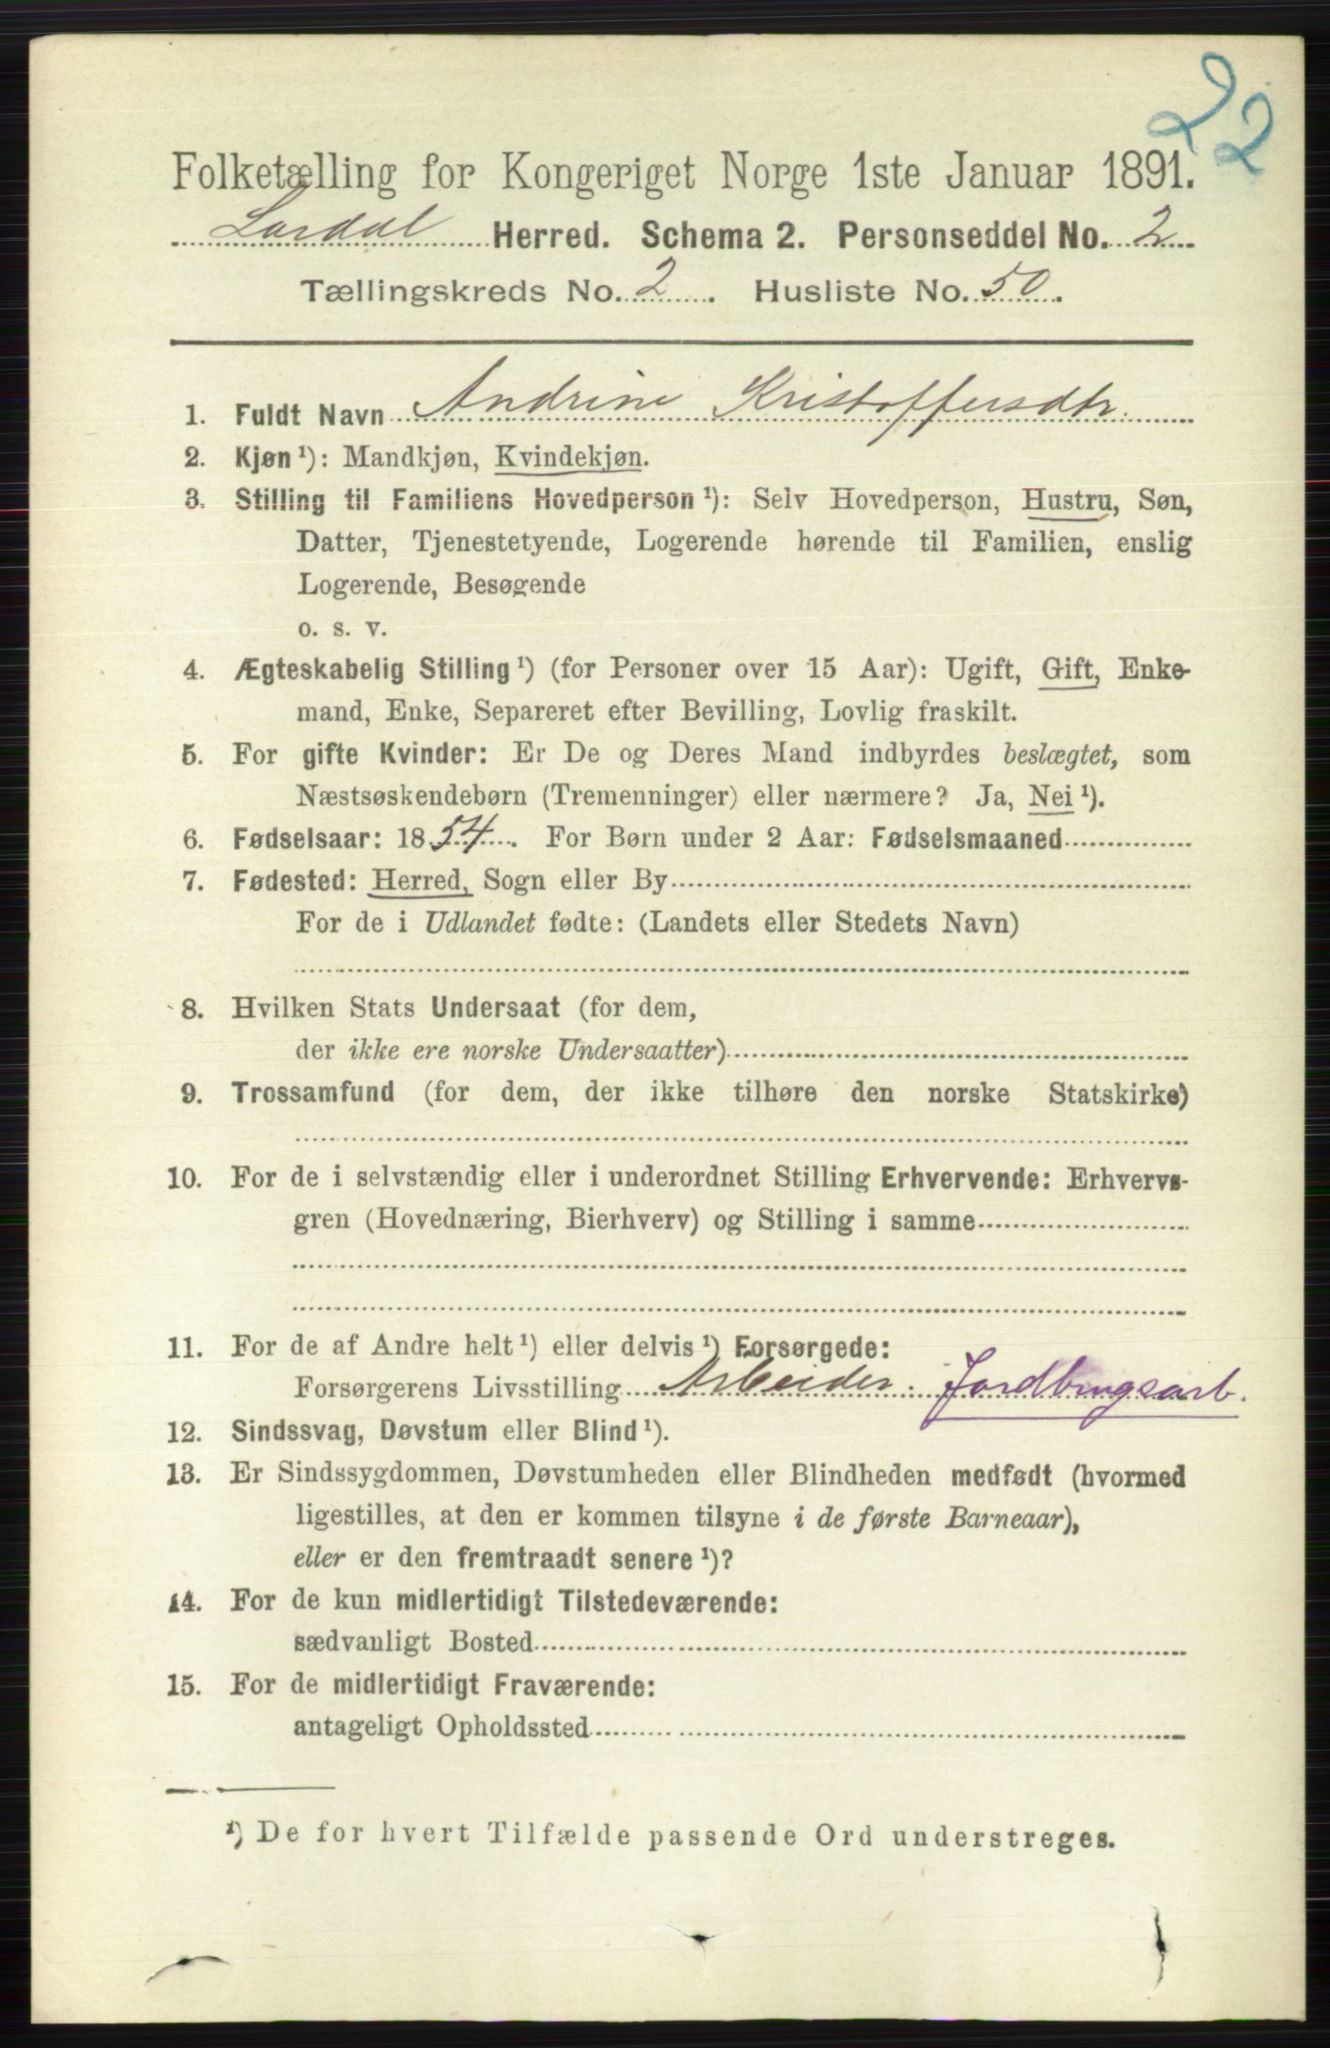 22
Folketælling for Kongeriget Norge 1ste Januar 1891.
Lardal Herred. Schema 2. Personseddel No. 2
Tællingskreds No. 2. Husliste No. 50.
1. Fuldt Navn Andrine Kristoffersdtr.
2. Kjøn ¹): Mandkjøn, Kvindekjøn.
3. Stilling til Familiens Hovedperson ¹): Selv Hovedperson, Hustru, Søn,
Datter, Tjenestetyende, Logerende hørende til Familien, enslig
Logerende, Besøgende
o. s. v.
4. Ægteskabelig Stilling ¹) (for Personer over 15 Aar): Ugift, Gift, Enke-
mand, Enke, Separeret efter Bevilling, Lovlig fraskilt.
5. For gifte Kvinder: Er De og Deres Mand indbyrdes beslægtet, som
Næstsøskendebørn (Tremenninger) eller nærmere? Ja, Nei ¹).
6. Fødselsaar: 1854. For Børn under 2 Aar: Fødselsmaaned
7. Fødested: Herred, Sogn eller By
For de i Udlandet fødte: (Landets eller Stedets Navn)
8. Hvilken Stats Undersaat (for dem,
der ikke ere norske Undersaatter)
9. Trossamfund (for dem, der ikke tilhøre den norske Statskirke)
10. For de i selvstændig eller i underordnet Stilling Erhvervende: Erhvervs-
gren (Hovednæring, Bierhverv) og Stilling i samme
11. For de af Andre helt ¹) eller delvis ¹) Forsørgede:
Forsørgerens Livsstilling Arbeider. Jordbrugsarb.
12. Sindssvag, Døvstum eller Blind ¹).
13. Er Sindssygdommen, Døvstumheden eller Blindheden medfødt (hvormed
ligestilles, at den er kommen tilsyne i de første Barneaar),
eller er den fremtraadt senere ¹)?
14. For de kun midlertidigt Tilstedeværende:
sædvanligt Bosted
15. For de midlertidigt Fraværende:
antageligt Opholdssted
¹) De for hvert Tilfælde passende Ord understreges.